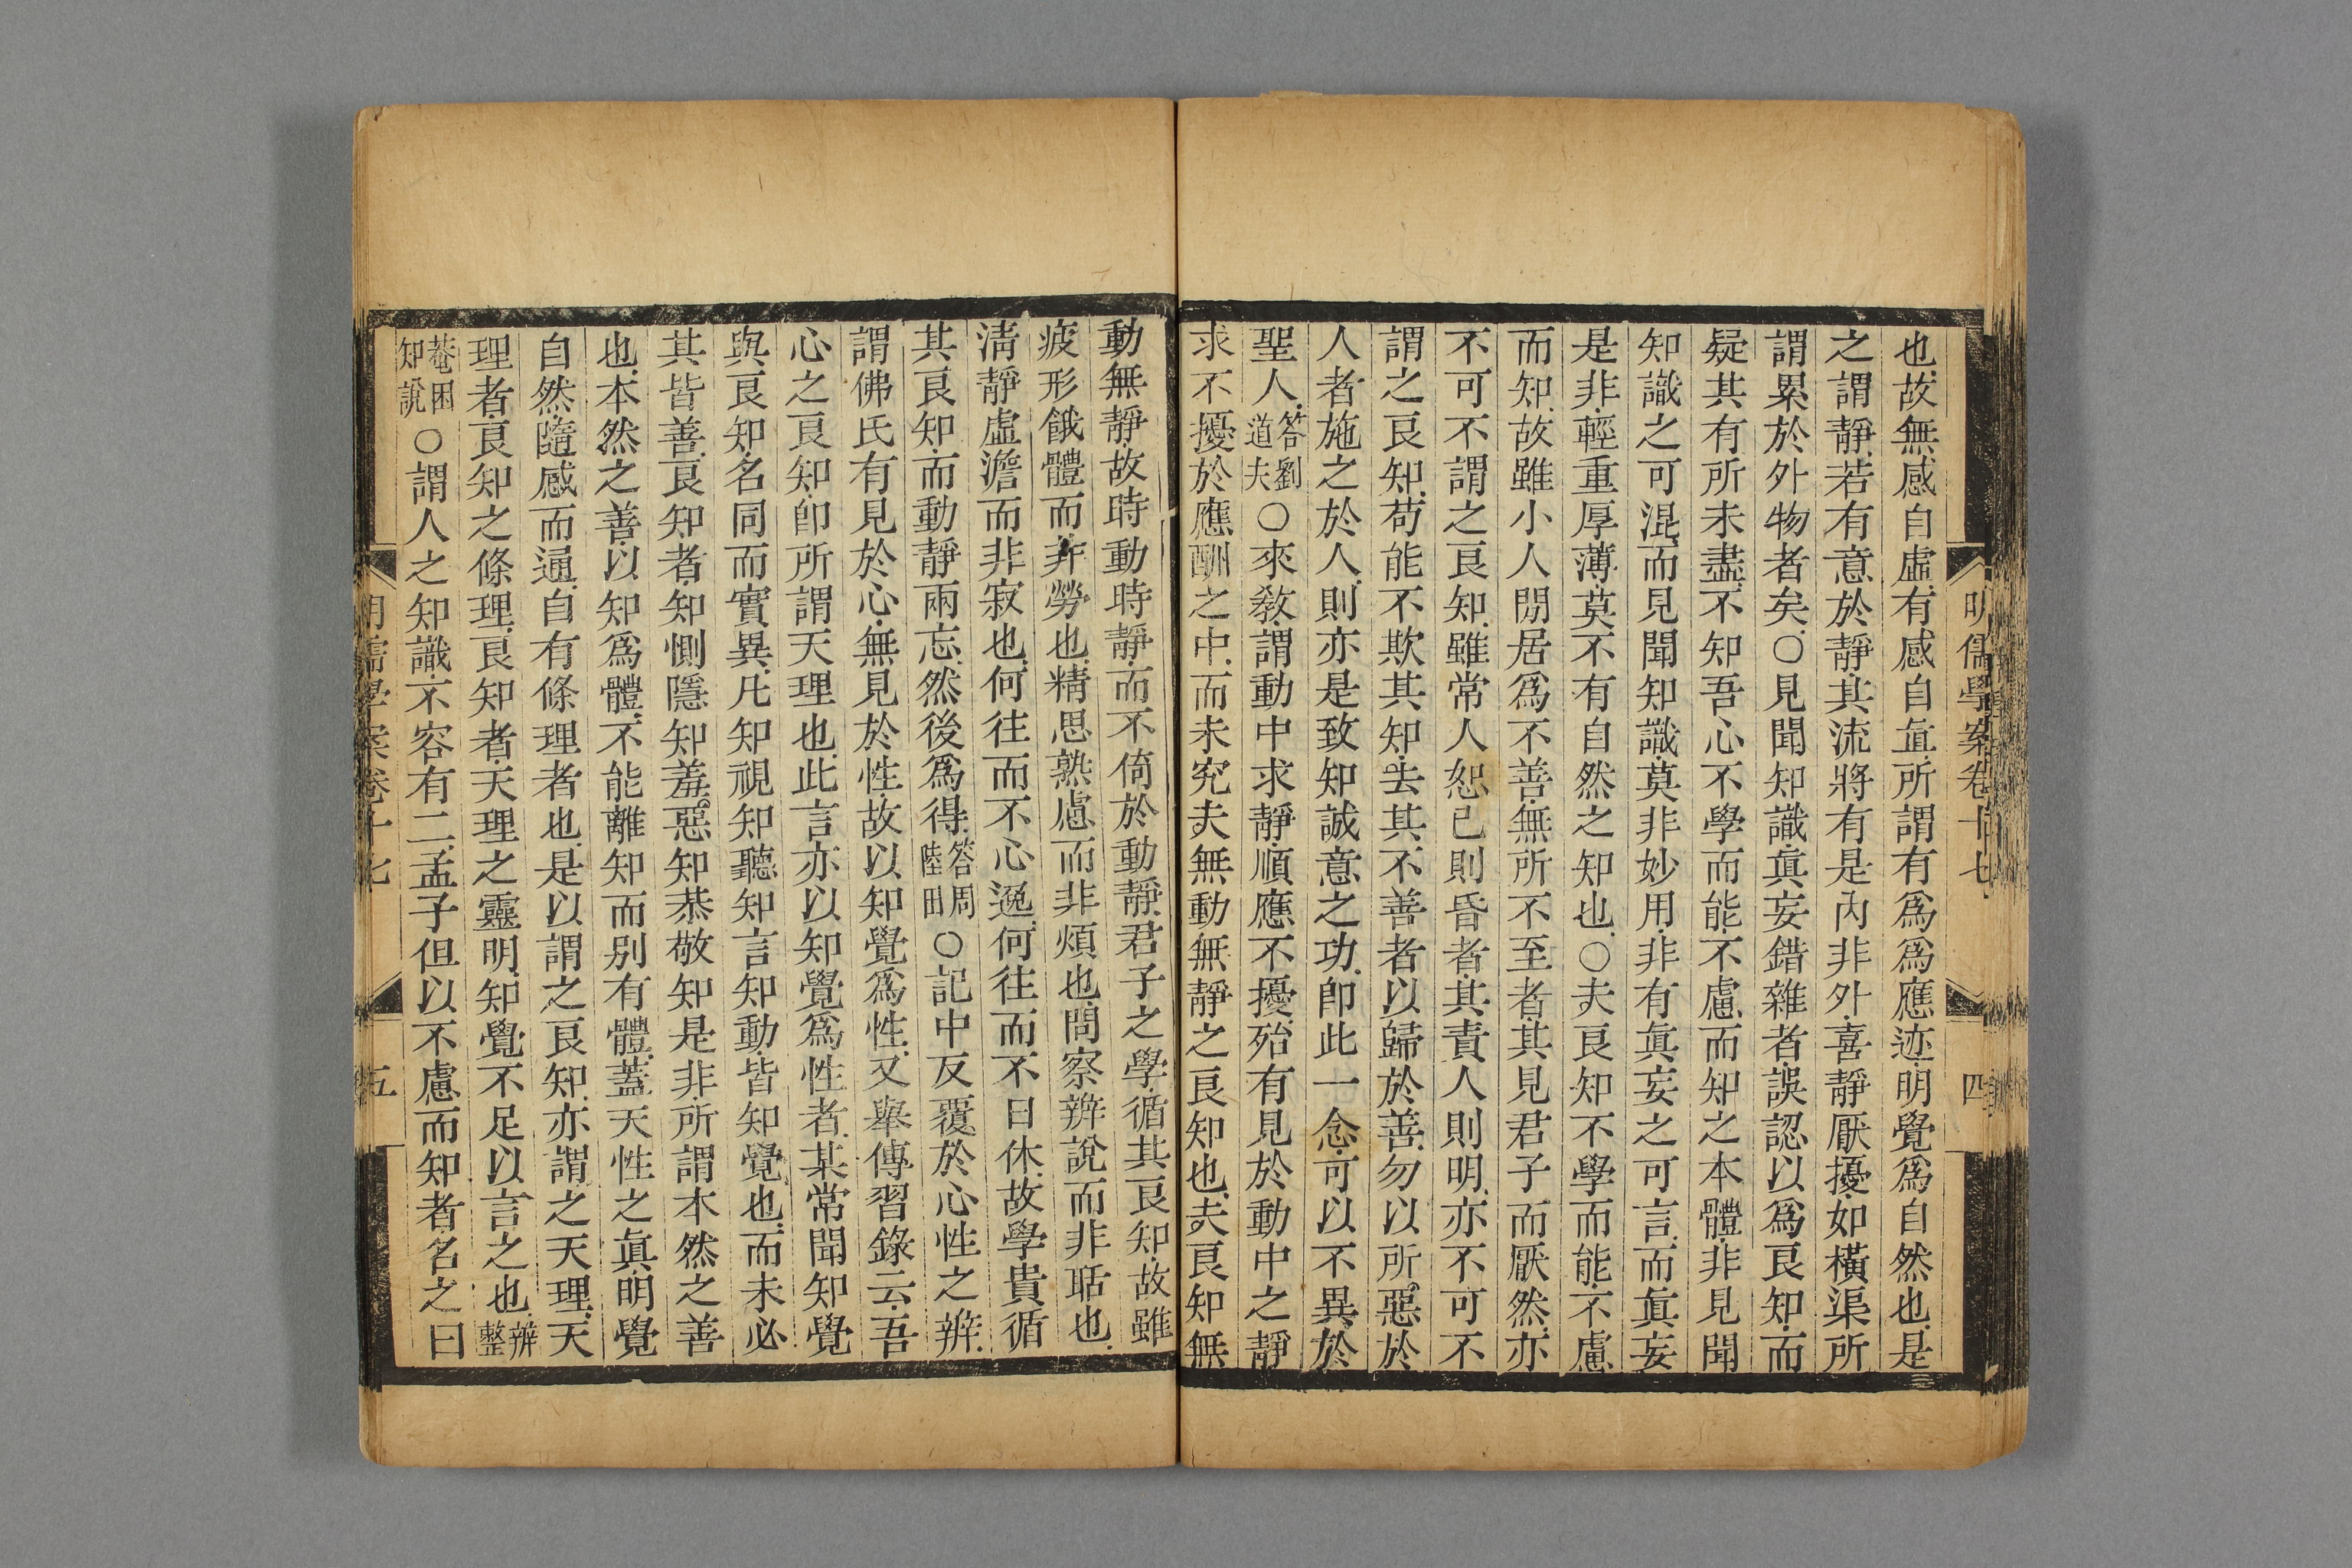 明儒學案卷十七 四
也故無感自虛有感自直所謂有爲爲應迹明覺爲自然也是
之謂靜若有意於靜其流將有是內非外喜靜厭擾如橫渠所
謂累於外物者矣○見聞知識眞妄錯雜者誤認以爲良知而
疑其有所未盡不知吾心不學而能不慮而知之本體非見聞
知識之可混而見聞知識莫非妙用非有眞妄之可言而眞妄
是非輕重厚薄莫不有自然之知也○夫良知不學而能不慮
而知故雖小人閒居爲不善無所不至者其見君子而厭然亦
不可不謂之良知雖常人恕己則昏者其責人則明亦不可不
謂之良知苟能不欺其知去其不善者以歸於善勿以所惡於
人者施之於人則亦是致知誠意之功卽此一念可以不異於
聖人答劉道夫○來敎謂動中求靜順應不擾殆有見於動中之靜
求不擾於應酬之中而未究夫無動無靜之良知也夫良知無
動無靜故時動時靜而不倚於動靜君子之學循其良知故雖
疲形餓體而非勞也精思熟慮而非煩也問察辨說而非聒也
淸靜虛澹而非寂也何往而不心逸何往而不日休故學貴循
其良知而動靜兩忘然後爲得答周陸田○記中反覆於心性之辨
謂佛氏有見於心無見於性故以知覺爲性又舉傳習錄云吾
心之良知卽所謂天理也此言亦以知覺爲性者某常聞知覺
與良知名同而實異凡知視知聽知言知動皆知覺也而未必
其皆善良知者知惻隱知羞惡知恭敬知是非所謂本然之善
也本然之善以知爲體不能離知而別有體蓋天性之眞明覺
自然隨感而通自有條理者也是以謂之良知亦謂之天理天
理者良知之條理良知者天理之靈明知覺不足以言之也辨整
菴困知說○謂人之知識不容有二孟子但以不慮而知者名之曰
明儒學案卷十七 五